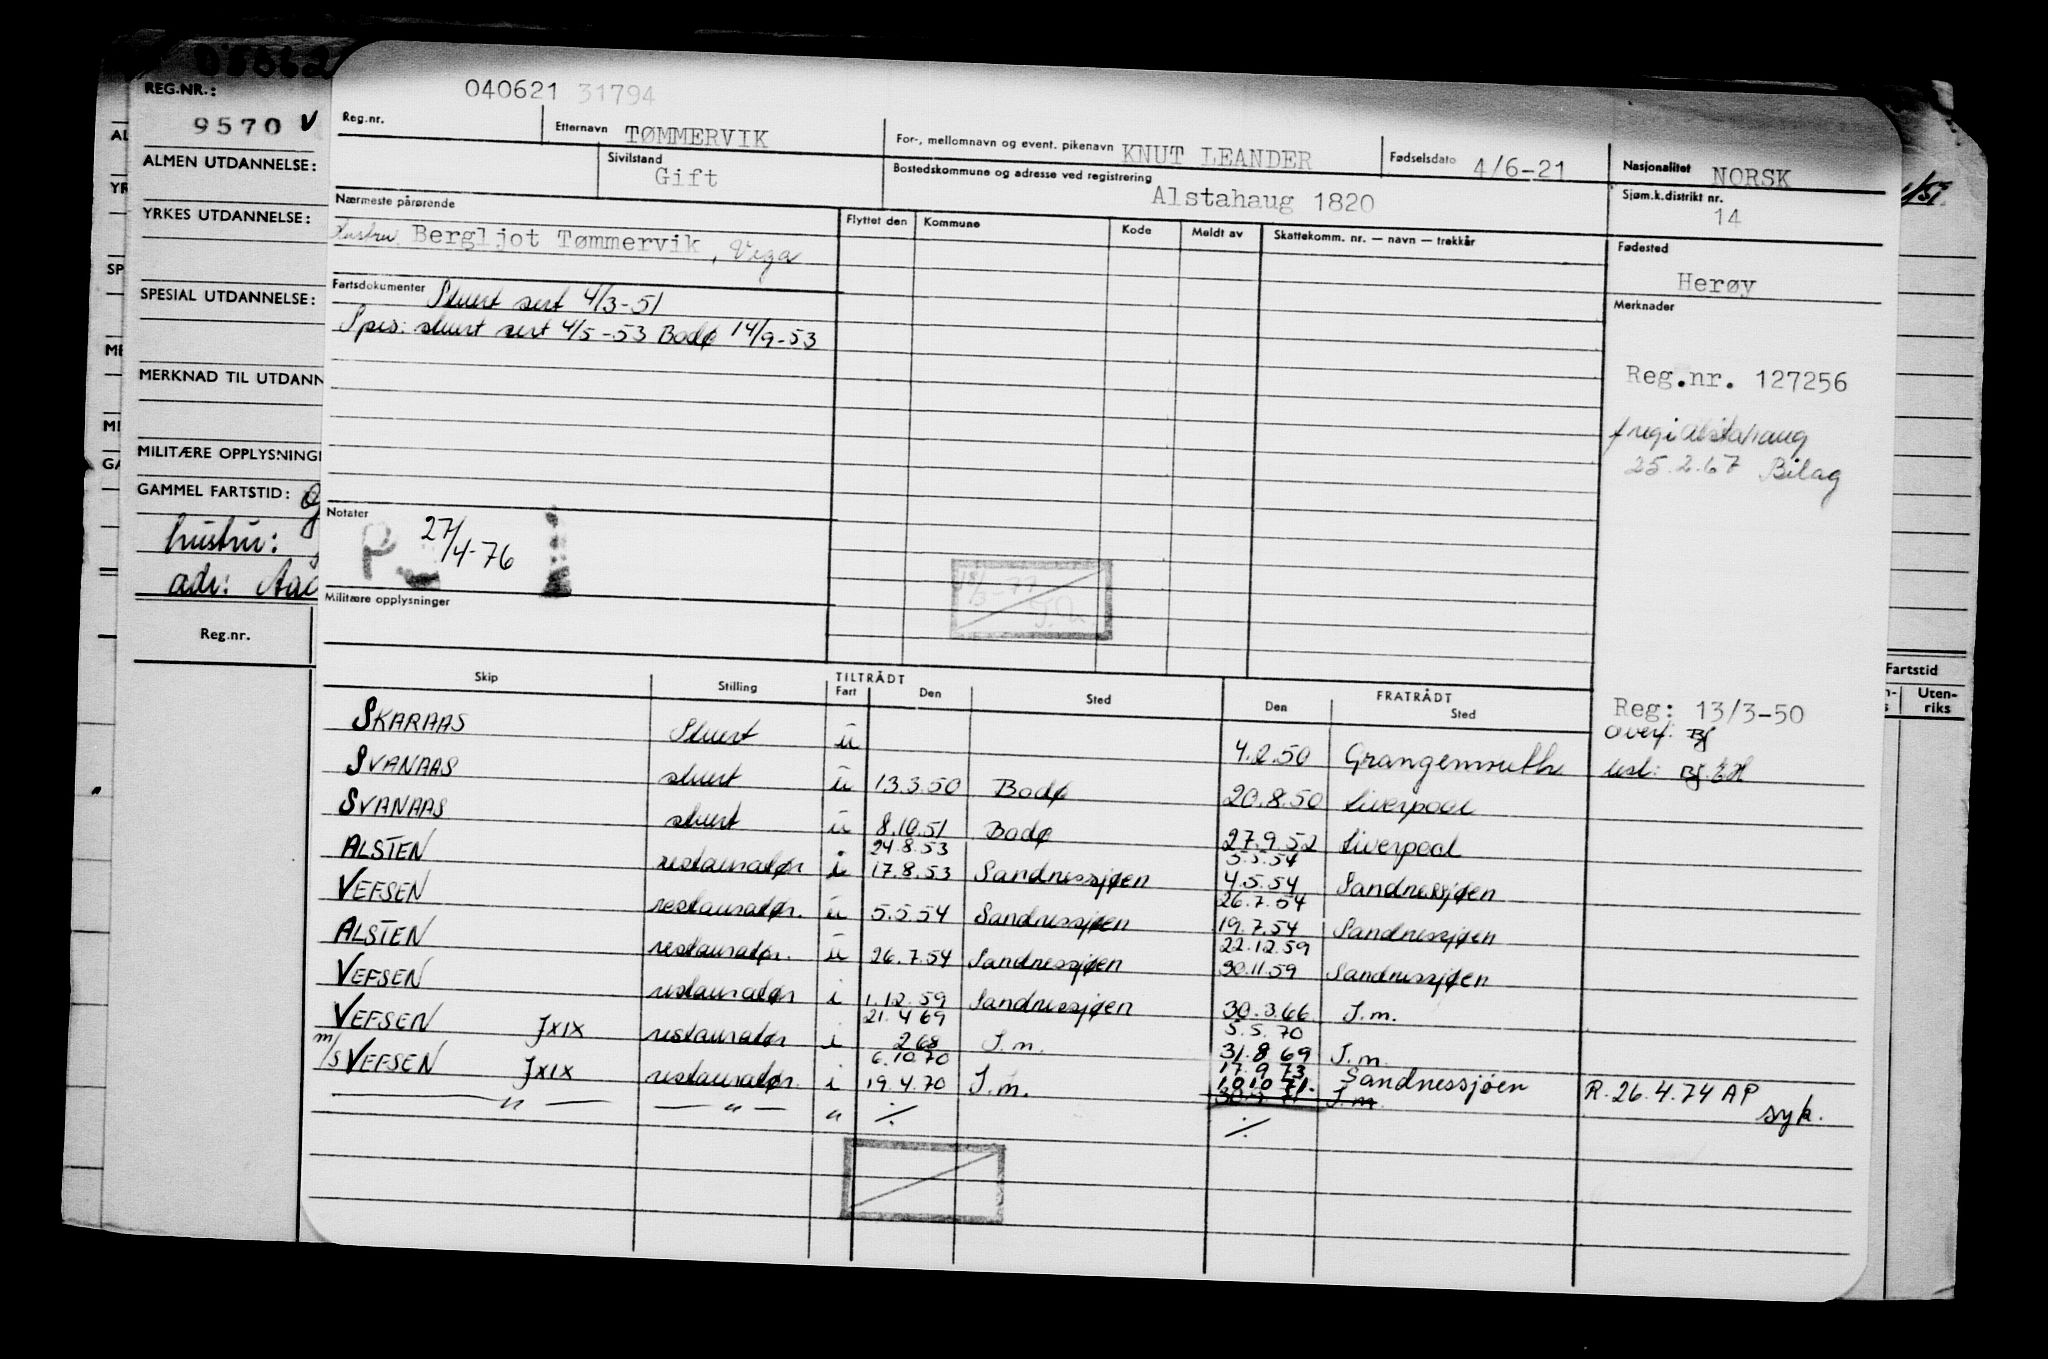 REG.NR.:
9570 V
ALMEN UTDANNELSE:
YRKES UTDANNELSE:
SPESIAL UTDANNELSE:
MERKNAD TIL UTDANN
MILITÆRE OPPLYSNINGE
GAMMEL FARTSTID:
hustru:
adr:
Reg.nr.
040621 31794
Reg.nr.
Etternavn TØMMERVIK
For-, mellomnavn og event. pikenavn KNUT LEANDER
Fødselsdato 4/6-21
Nasjonalitet NORSK
Sivilstand
Gift
Bostedskommune og adresse ved registrering
Alstahaug 1820
Sjøm.k.distrikt nr.
14
Nærmeste pårørende
Hustru Bergljot Tømmervik, Vega
Flyttet den Kommune Kode Meldt av Skattekomm. nr. — navn — trekkår
Fødested
Herøy
Fartsdokumenter Stuert sert 4/3-51
Spes: stuert sert 4/5-53 Bodø 14/9-53
Merknader
Reg.nr. 127256
f regi Alstahaug
25.2.67 Bilag
Notater
P 27/4-76
Militære opplysninger
Skip Stilling TILTRÅDT Fart Den Sted FRATRÅDT Den Sted
Reg: 13/3-50
Overf:
SKARAAS Stuert u 4.2.50 Grangemouth
SVANAAS stuert u 13.3.50 Bodø 20.8.50 Liverpool
SVANAAS stuert u 8.10.51 Bodø 27.9.52 Liverpool
24.8.53 5.5.54
ALSTEN restauratør i 17.8.53 Sandnessjøen 4.5.54 Sandnessjøen
26.7.54
VEFSEN restauratør. u 5.5.54 Sandnessjøen 19.7.54 Sandnessjøen
22.12.59
ALSTEN restauratør. u 26.7.54 Sandnessjøen 30.11.59 Sandnessjøen
VEFSEN restauratør i 1.12.59 Sandnessjøen 30.3.66 S.m.
21.4 69 5.5.70
VEFSEN JXIX restauratør i 2 68 S.m. 31.8 69 S.m.
6.10.70 17.9.73 Sandnessjøen
m/s VEFSEN JXIX restauratør. i 19.4.70 S.m. 1010 71. S.m.
R. 26.4.74 AP
syk.
— " — — " — " ⁒ ⁒
Fartstid
Uten-
riks